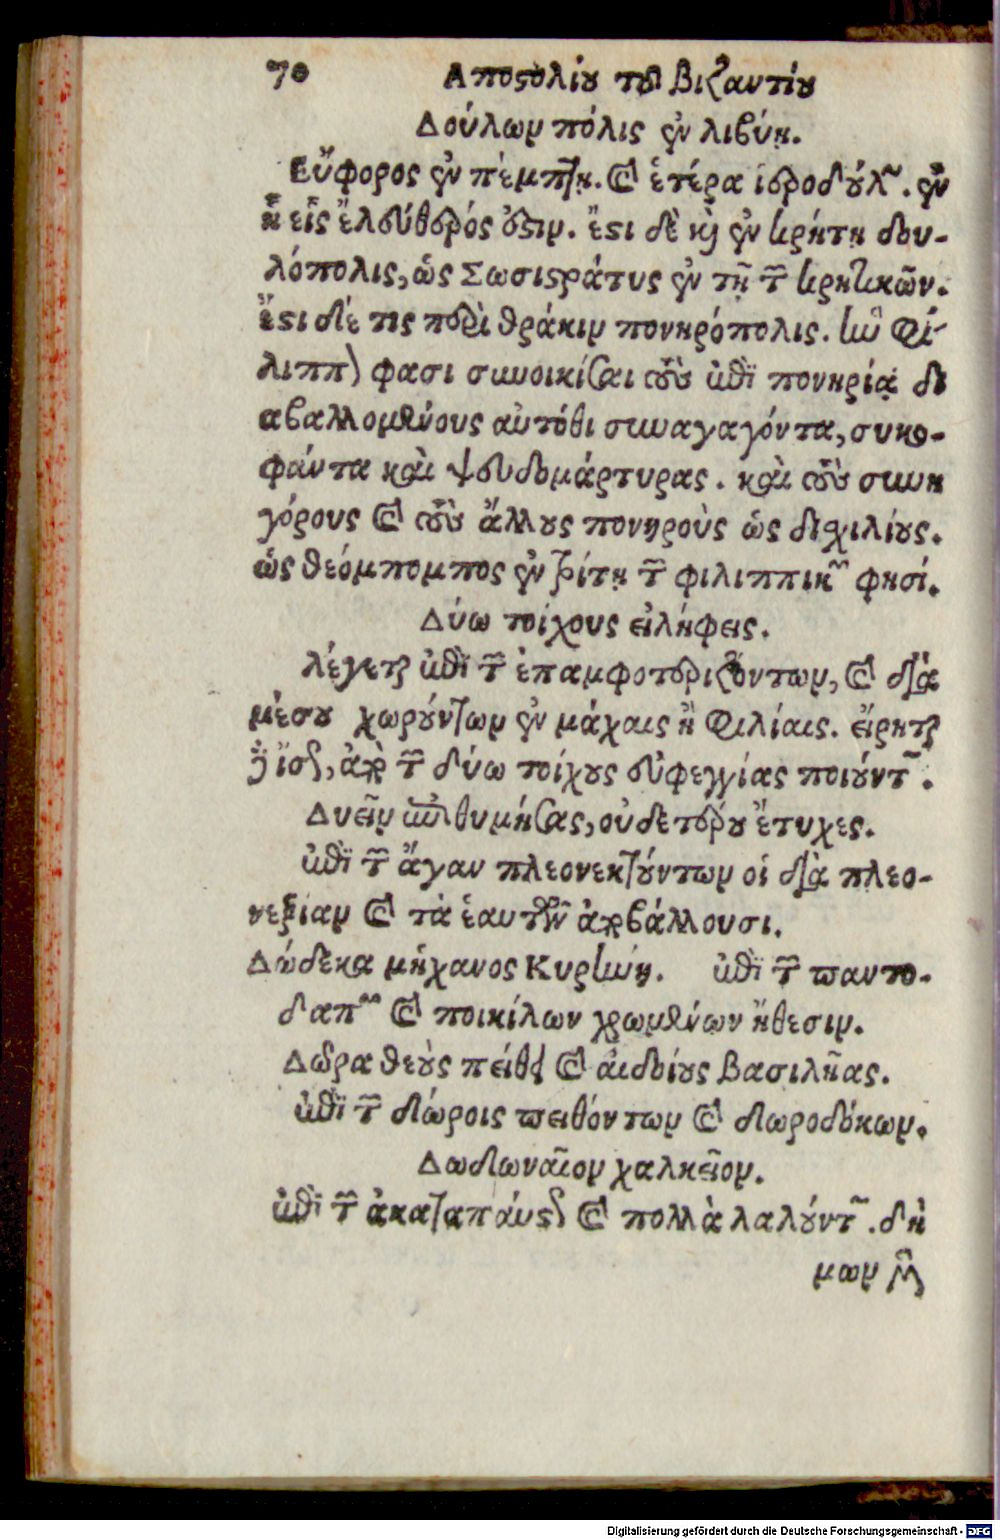 70 Αποστολίου του βιζαντίου
Δούλωμ πόλις ἐν λιβύῃ.
Εὔφορος ἐν πέμπτῃ. καὶ ἑτέρα ἱεροδούλων. ἐν
ᾗ εἷς ἐλεύθερός ἐστιν. ἔστι δὲ καὶ ἐν κρήτῃ δου-
λόπολις, ὡς Σωσιστράτυς ἐν τῇ τῶν κρητικῶν.
ἔστι δέ τις περὶ θράκιν πονηρόπολις. ἣν Φί-
λιππον φασι συνοικίσαι τοὺς ἐπὶ πονηρίᾳ δι
αβαλλομένους αὐτόθι συναγαγόντα, συκο-
φάντα καὶ ψευδομάρτυρας. καὶ τοὺς συνη
γόρους καὶ τοὺς ἄλλους πονηροὺς ὡς διχιλίους.
ὡς θεόμπομπος ἐν τρίτῃ τῶν φιλιππικῶν φησί.
Δύω τοίχους εἰλήφεις.
λέγεται ἐπὶ τῶν ἐπαμφοτεριζόντων, καὶ διὰ
μέσου χωρούντων ἐν μάχαις ἢ φιλίαις. εἴρηται
ἀπὸ τῶν δύω τοίχους εὐφεγγίας ποιούντων.
Δυεῖν ἐπιθυμήσας, οὐδετέρου ἔτυχες.
ἐπὶ τῶν ἄγαν πλεονεκτούντων οἱ διὰ πλεο-
νεξίαν καὶ τὰ ἑαυτῶν ἀποβάλλουσι.
Δώδεκα μήχανος Κυρήνη. ἐπὶ τῶν παντο-
δαπῶν καὶ ποικίλων χρωμένων ἤθεσιν.
Δῶρα θεοὺς πείθει καὶ αἰδοίους βασιλῆας.
ἐπὶ τῶν δώροις πειθόντων καὶ δωροδόκων.
Δωδωναῖον χαλκεῖον.
ἐπὶ τῶν ἀκαταπαύστως καὶ πολλὰ λαλούντων. δή
μων
Digitalisierung gefördert durch die Deutsche Forschungsgemeinschaft - DFG